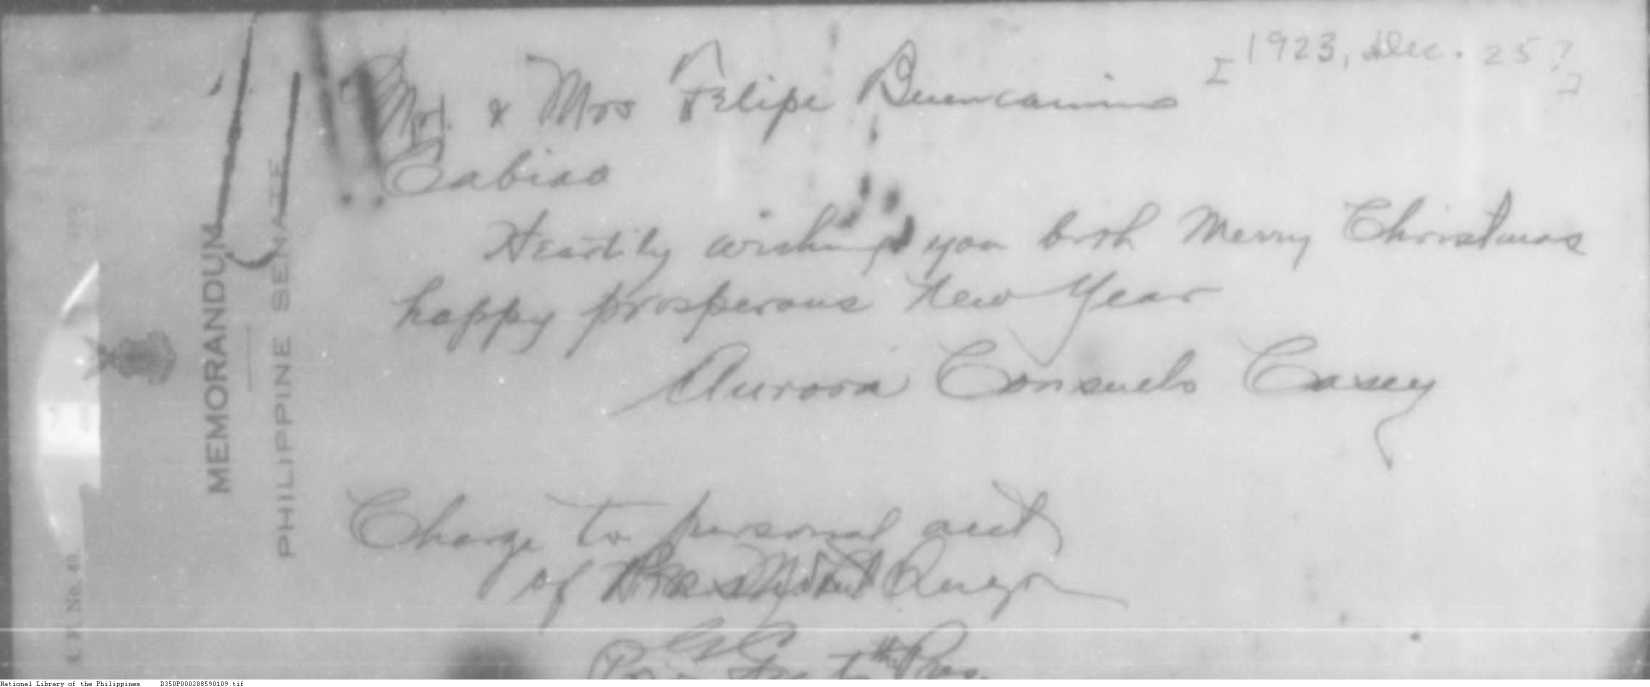 [1923, Dec. 25?]
Mr. & Mrs Felipe Buencamino
Cabiao
Heartily wishing you both Merry Christmas
happy prosperous New Year
Aurora Consuelo Casey
MEMORANDUM
PHILIPPINE SENATE
Charge to personal acct
of President Quezon
to the Pres.
National Library of the Philippines D350P000208590109.tif